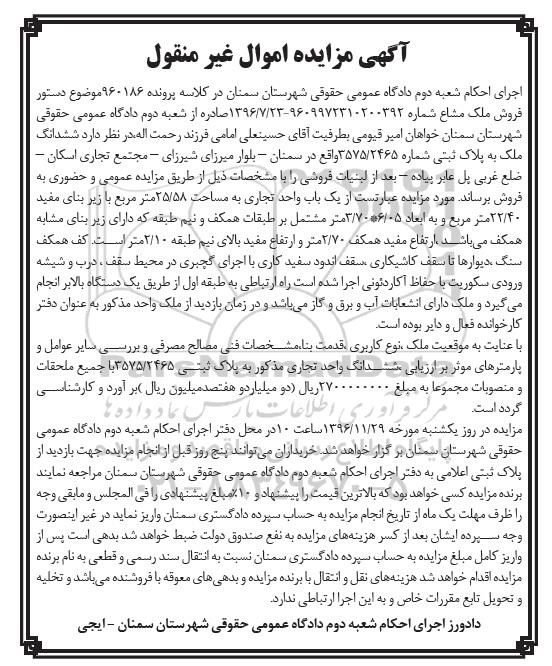 آگهی مزایده اموال غیر منقول
اجرای احکام شعبه دوم دادگاه عمومی حقوقی شهرستان سمنان در کلاسه پرونده ۹۶۰۱۸۶موضوع دستور
فروش ملک مشاع شماره ۹۶۰۹۹۷۲۳۱۰۲۰۰۳۹۲-۱۳۹۶/۷/۲۳صادره از شعبه دوم دادگاه عمومی حقوقی
شهرستان سمنان خواهان امیر قیومی بطرفیت آقای حسینعلی امامی فرزند رحمت اله،در نظر دارد ششدانگ
ملک به پلاک ثبتی شماره ۳۵۷۵/۲۴۶۵واقع در سمنان – بلوار میرزای شیرزای – مجتمع تجاری اسکان –
ضلع غربی پل عابر پیاده – بعد از لبنیات فروشی را با مشخصات ذیل از طریق مزایده عمومی و حضوری به
فروش برساند. مورد مزایده عبارتست از یک باب واحد تجاری به مساحت ۲۵/۵۸متر مربع با زیر بنای مفید
۲۲/۴۰متر مربع و به ابعاد ۶/۰۵*۳/۷۰متر مشتمل بر طبقات همکف و نیم طبقه که دارای زیر بنای مشابه
همکف می‌باشد ،ارتفاع مفید همکف ۲/۷۰متر و ارتفاع مفید بالای نیم طبقه ۲/۱۰متر است. کف همکف
سنگ ،دیوارها تا سقف کاشیکاری ،سقف اندود سفید کاری با اجرای گچبری در محیط سقف ، درب و شیشه
ورودی سکوریت با حفاظ آکاردئونی اجرا شده است راه ارتباطی به طبقه اول از طریق یک دستگاه بالابر انجام
می‌گیرد و ملک دارای انشعابات آب و برق و گاز می‌باشد و در زمان بازدید از ملک واحد مذکور به عنوان دفتر
کارخوانده فعال و دایر بوده است.
با عنایت به موقعیت ملک ،نوع کاربری ،قدمت بنا،مشخصات فنی مصالح مصرفی و بررسی سایر عوامل و
پارمترهای موثر بر ارزیابی ،ششدانگ واحد تجاری مذکور به پلاک ثبتی ۳۵۷۵/۲۴۶۵با جمیع ملحقات
و منصوبات مجموعا به مبلغ ۲۷۰۰۰۰۰۰۰۰ریال (دو میلیاردو هفتصدمیلیون ریال )بر آورد و کارشناسی
گردد است.
مزایده در روز یکشنبه مورخه ۱۳۹۶/۱۱/۲۹ساعت ۱۰در محل دفتر اجرای احکام شعبه دوم دادگاه عمومی
حقوقی شهرستان سمنان بر گزار خواهد شد. خریداران می‌توانند پنج روز قبل از انجام مزایده جهت بازدید از
پلاک ثبتی اعلامی به دفتر اجرای احکام شعبه دوم دادگاه عمومی حقوقی شهرستان سمنان مراجعه نمایند
برنده مزایده کسی خواهد بود که بالاترین قیمت را پیشنهاد و ۱۰%مبلغ پیشنهادی را فی المجلس و مابقی وجه
را ظرف مهلت یک ماه از تاریخ انجام مزایده به حساب سپرده دادگستری سمنان واریز نماید در غیر اینصورت
وجه سپرده ایشان بعد از کسر هزینه‌های مزایده به نفع صندوق دولت ضبط خواهد شد بدهی است پس از
واریز کامل مبلغ مزایده به حساب سپرده دادگستری سمنان نسبت به انتقال سند رسمی و قطعی به نام برنده
مزایده اقدام خواهد شد هزینه‌های نقل و انتقال با برنده مزایده و بدهی‌های معوقه با فروشنده می‌باشد و تخلیه
و تحویل تابع مقررات خاص و به این اجرا ارتباطی ندارد.
دادورز اجرای احکام شعبه دوم دادگاه عمومی حقوقی شهرستان سمنان - ایجی